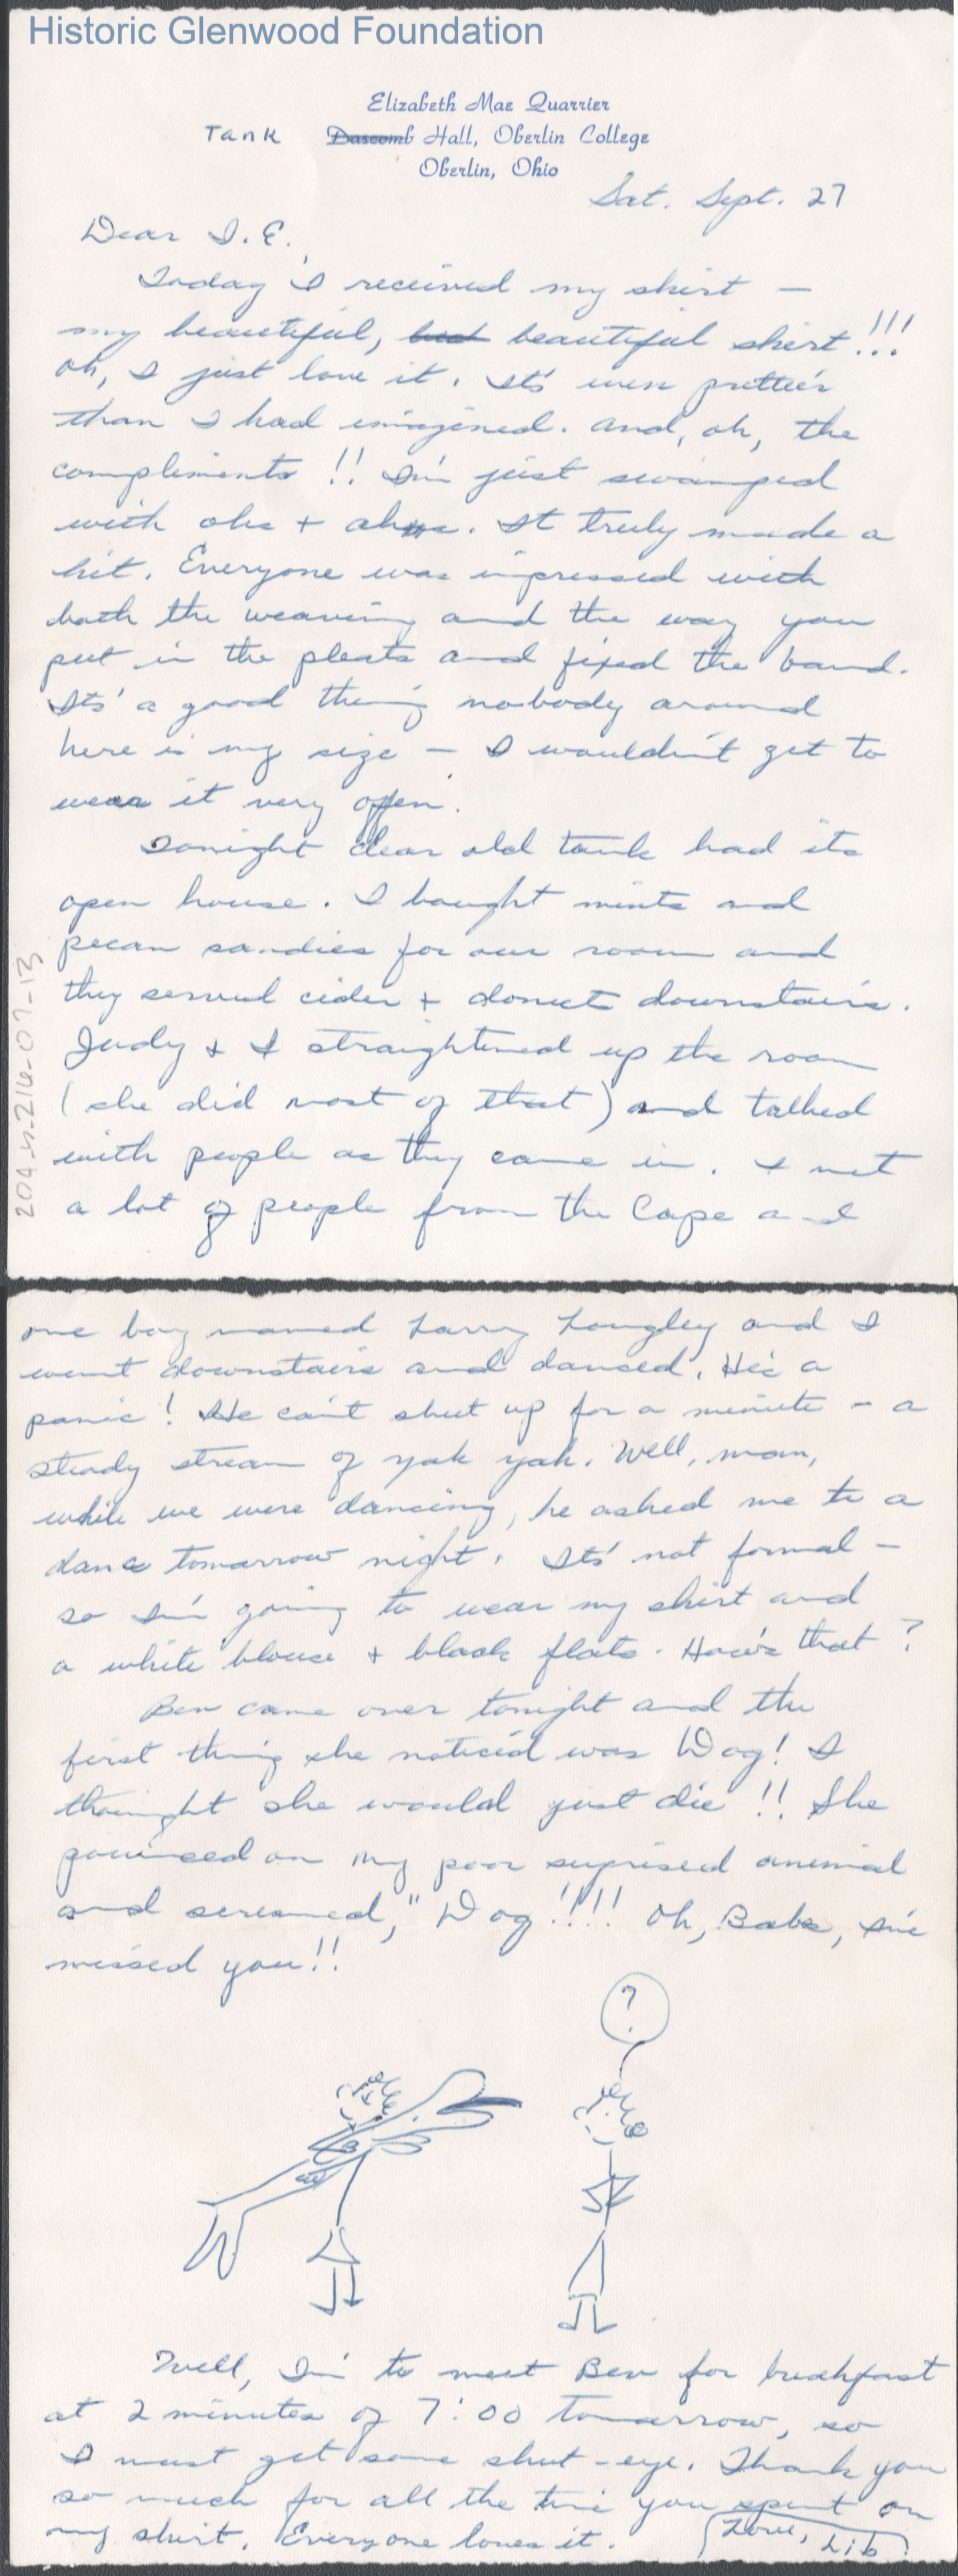 Historic Glenwood Foundation
Elizabeth Mae Quarrier
Tank Dascomb Hall, Oberlin College
Oberlin, Ohio
Sat. Sept. 27
Dear I.E.,
Today I received my skirt –
my beautiful, beautiful skirt!!!
Oh, I just love it. It's even prettier
than I had imagined. And, oh, the
compliments!! I'm just swamped
with ohs + ahs. It truly made a
hit. Everyone was impressed with
both the weaving and the way you
put in the pleats and fixed the band.
Its' a good thing nobody around
here is my size – I wouldn't get to
wear it very often.
Tonight dear old tank had its
open house. I bought mints and
pecan sandies for our room and
they served cider + donuts downstairs.
Judy + I straightened up the room
(she did most of that) and talked
with people as they came in. I met
a lot of people from the Cape and
204-4-216-07-13
one boy named Larry Longley and I
went downstairs and danced. He's a
panic! He can't shut up for a minute – a
steady stream of yak yak. Well, mom,
while we were dancing, he asked me to a
dance tomorrow night. Its' not formal –
so I'm going to wear my skirt and
a white blouse + black flats. How's that?
Bev came over tonight and the
first thing she noticed was Dog! I
thought she would just die!! She
pounced on my poor suprised animal
and screamed, "Dog!!!! Oh, Babe, I've
missed you!!
?
Well, I'm to meet Bev for breakfast
at 2 minutes of 7:00 tomorrow, so
I must get some shut-eye. Thank you
so much for all the time you spent on
my skirt. Everyone loves it.
Love, Lib